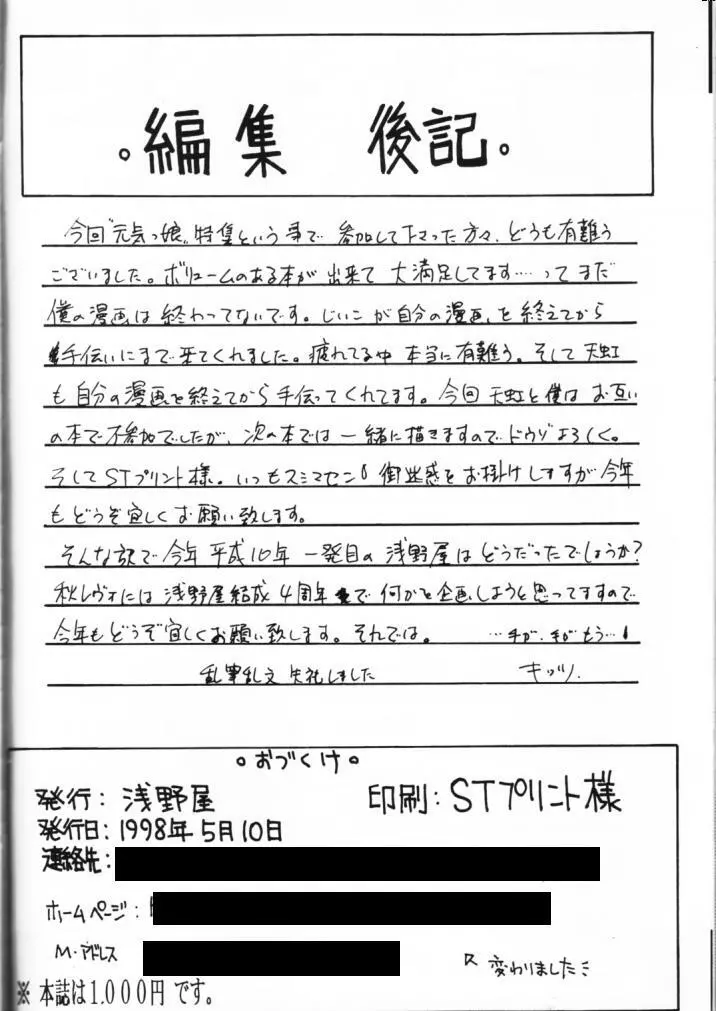 。編集 後記。
今回"元気っ娘"特集という事で 参加して下さった方々、どうも有難う
ございました。ボリュームのある本が 出来て 大満足してます……って まだ
僕の漫画は 終わってないです。じいこ が自分の漫画、を 終えてから
手伝いにまで来てくれました。疲れてる中 本当に有難う。そして 天虹
も 自分の漫画を終えてから 手伝ってくれてます。今回 天虹と僕は お互い
の本で不参加でしたが、次の本では 一緒に描きますのでドウゾよろしく。
そしてSTプリント様。いつもスミマセン! 御迷惑を お掛けしますが今年
も どうぞ宜しくお願い致します。
そんな訳で今年 平成10年 一発目の 浅野屋は どうだったでしょうか?
秋レヴォには 浅野屋結成 4周年で 何かを企画しようと思ってますので
今年も どうぞ宜しくお願い致します。それでは。 …手が、手がもう…!
乱筆乱文 失礼しました キッツ
。おづくけ。
発行: 浅野屋 印刷: STプリント様
発行日: 1998年 5月10日
連絡先:
ホームページ:
M・アドレス 変わりました
※ 本誌は1,000円 です。